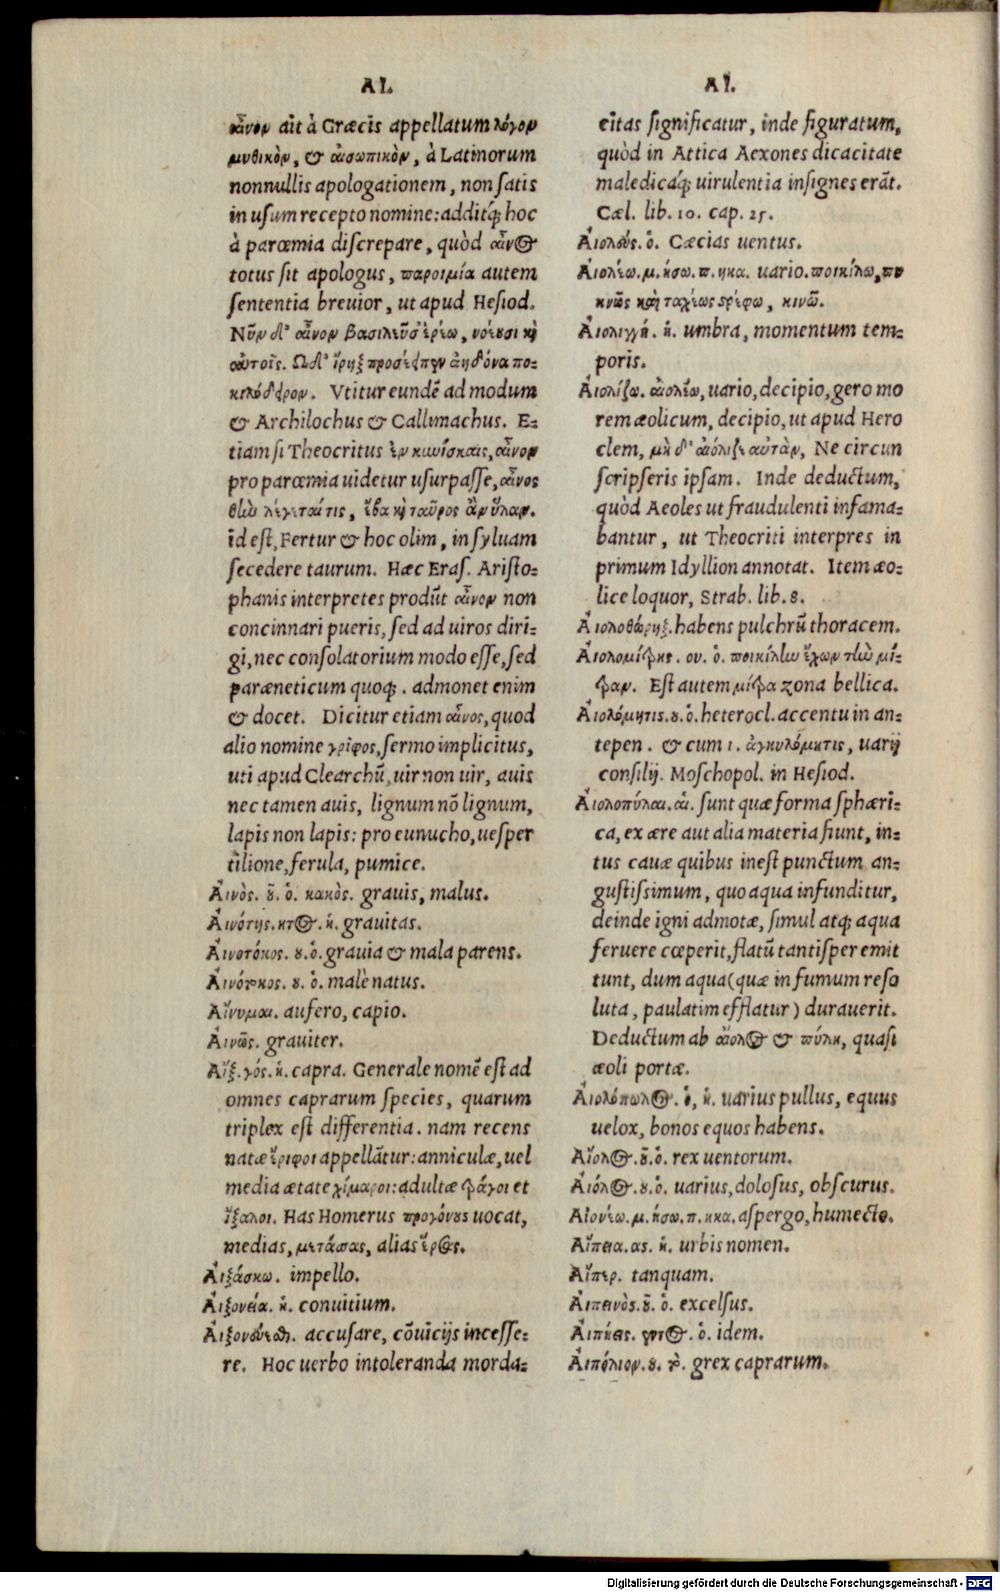 AI.
αἶνον ait à Græcis appellatum λόγον
μυθικὸν, & αἰσωπικὸν, à Latinorum
nonnullis apologationem, non satis
in usum recepto nomine: additq́; hoc
à parœmia discrepare, quòd αἶνος
totus sit apologus, παροιμία autem
sententia breuior, ut apud Hesiod.
Νῦν δ' αἶνον βασιλεῦσ' ἐρέω, νοέουσι καὶ
αὐτοῖς. Ωδ' ἴρηξ προσέειπεν ἀηδόνα ποι-
κιλόδειρον. Vtitur eundē ad modum
& Archilochus & Callimachus. E-
tiam si Theocritus ἐν κυνίσκαις, αἶνον
pro parœmia uidetur usurpasse, αἶνος
θὴν λέγεταί τις, ἔβα καὶ ταῦρος ἀν ὕλαν.
id est, Fertur & hoc olim, in syluam
secedere taurum. Hæc Eras. Aristo-
phanis interpretes produnt αἶνον non
concinnari pueris, sed ad uiros diri-
gi, nec consolatorium modo esse, sed
paræneticum quoq;. admonet enim
& docet. Dicitur etiam αἶνος, quod
alio nomine γρῖφος, sermo implicitus,
uti apud Clearchū, uir non uir, auis
nec tamen auis, lignum nō lignum,
lapis non lapis: pro eunucho, uesper
tilione, ferula, pumice.
Αἰνὸς. οῦ. ὁ. κακὸς. grauis, malus.
Αἰνότης. ητος. ἡ. grauitas.
Αἰνοτόκος. ου. ὁ. grauia & mala parens.
Αἰνότοκος. ου. ὁ. malè natus.
Αἴνυμαι. aufero, capio.
Αἰνῶς. grauiter.
Αἴξ. γός. ἡ. capra. Generale nomē est ad
omnes caprarum species, quarum
triplex est differentia. nam recens
natæ ἔριφοι appellātur: anniculæ, uel
media ætate χίμαροι: adultæ τράγοι et
ἴξαλοι. Has Homerus προγόνους uocat,
medias, μετάσσας, alias ἔρσας.
Αἰξάσκω. impello.
Αἰξονεία. ἡ. conuitium.
Αἰξονεύεσθαι. accusare, cōuicijs incesse-
re. Hoc uerbo intoleranda morda-
AI.
citas significatur, inde figuratum,
quòd in Attica Aexones dicacitate
maledicáq; uirulentia insignes erāt.
Cæl. lib. 10. cap. 25.
Αἰολεύς. ὁ. Cæcias uentus.
Αἰολέω. μ. ήσω. π. ηκα. uario. ποικίλω, πυ
κνῶς καὶ ταχέως στρέφω, κινῶ.
Αἰολιγγή. ἡ. umbra, momentum tem-
poris.
Αἰολίζω. αἰολέω, uario, decipio, gero mo
rem æolicum, decipio, ut apud Hero
clem, μὴ δ' αἰόλιζε αὐτὰν, Ne circun
scripseris ipsam. Inde deductum,
quòd Aeoles ut fraudulenti infama-
bantur, ut Theocriti interpres in
primum Idyllion annotat. Item æo-
lice loquor, Strab. lib. 8.
Αἰολοθώρηξ. habens pulchrū thoracem.
Αἰολομίτρης. ου. ὁ. ποικίλην ἔχων τὴν μί-
τραν. Est autem μίτρα zona bellica.
Αἰολόμητις. ου. ὁ. heterocl. accentu in an-
tepen. & cum ι. ἀγκυλόμητις, uarij
consilij. Moschopol. in Hesiod.
Αἰολοπύλαι. αἱ. sunt quæ forma sphæri-
ca, ex ære aut alia materia fiunt, in-
tus cauæ quibus inest punctum an-
gustissimum, quo aqua infunditur,
deinde igni admotæ, simul atq; aqua
feruere cœperit, flatū tantisper emit
tunt, dum aqua (quæ in fumum reso
luta, paulatim efflatur) durauerit.
Deductum ab αἴολος & πύλη, quasi
æoli portæ.
Αἰολόπωλος. ὁ, ἡ. uarius pullus, equus
uelox, bonos equos habens.
Αἴολος. οῦ. ὁ. rex uentorum.
Αἰόλος. ου. ὁ. uarius, dolosus, obscurus.
Αἰονέω. μ. ήσω. π. ηκα. aspergo, humecto.
Αἴπεια. ας. ἡ. urbis nomen.
Αἴπερ. tanquam.
Αἰπεινὸς. οῦ. ὁ. excelsus.
Αἰπήεις. εντος. ὁ. idem.
Αἰπόλιον. ου. τὸ. grex caprarum.
Digitalisierung gefördert durch die Deutsche Forschungsgemeinschaft - DFG